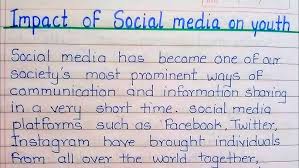 Impact of Social media on youth
Social media has become one of our
society's most prominent ways of
communication and information sharing
in a very short time. social media
platforms such as Facebook, Twitter,
Instagram have brought individuals
from all over the world together,